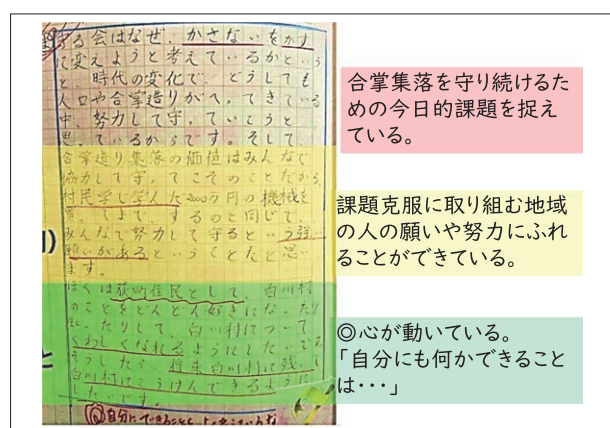 守る会はなぜ、かさないをかす
に変えようと考えているかという
と、時代の変化で、どうしても
人口や合掌造りがへってきている
中、努力して守っていこうと
思っているからです。そして、
合掌造り集落の価値はみんなで
協力して守ってこそのことだから、
村民学で学んだ200万円の機械を
するのと同じで、
みんなで努力して守るという強い
願いがあるということだと思い
ます。
ぼくは荻町住民として、白川村
のことをどんどん好きになったり
したりして、白川村について
くわしくなれるようにしたいです。
そうしたら、将来白川村に残って
白川村にこうけんできるように
したいです。
自分にできることを
合掌集落を守り続けるた
めの今日的課題を捉え
ている。
課題克服に取り組む地域
の人の願いや努力にふれ
ることができている。
◎心が動いている。
「自分にも何かできること
は・・・」